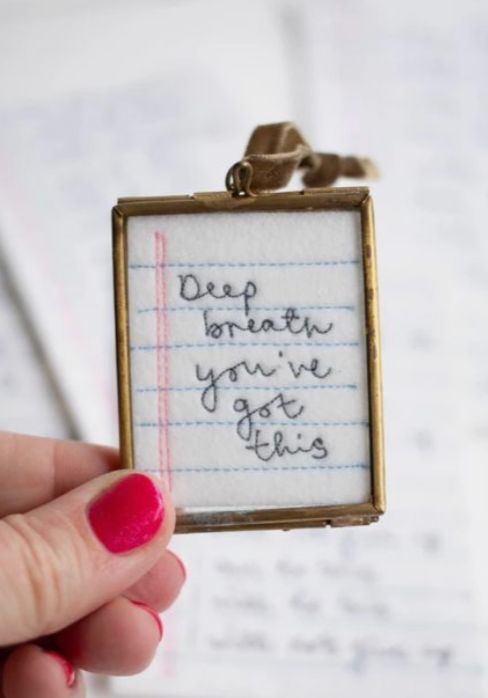 Deep
breath
you've
got
this